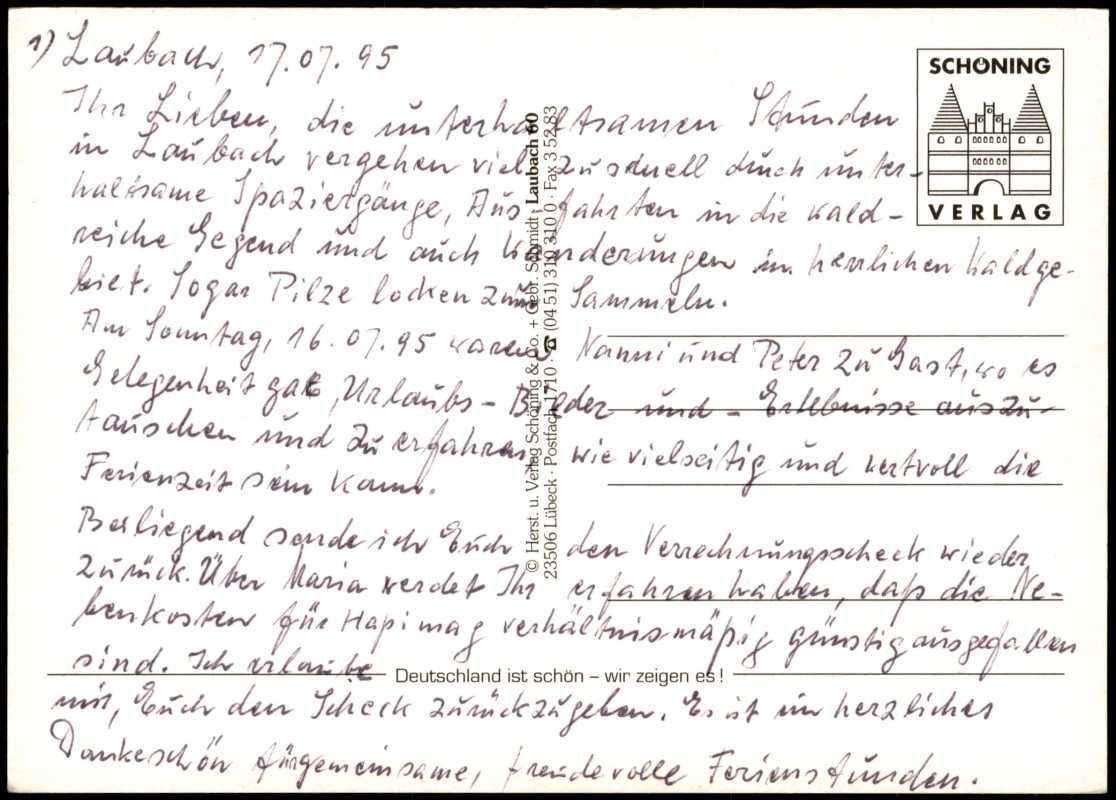 1) Laubach, 17.07.95
Ihr Lieben, die unterhaltsamen Stunden
in Laubach vergehen viel zu schnell durch unter-
haltsame Spaziergänge, Ausfahrten in die wald-
reiche Gegend und auch Wanderungen im herrlichen Waldge-
biet. Sogar Pilze locken zum Sammeln.
Am Sonntag, 16.07.95 waren Nanni und Peter zu Gast, wo es
Gelegenheit gab, Urlaubs-Bilder und -Erlebnisse auszu-
tauschen und zu erfahren wie vielseitig und wertvoll die
Ferienzeit sein kann.
Beiliegend sende ich Euch den Verrechnungsscheck wieder
zurück. Über Maria werdet Ihr erfahren haben, daß die Ne-
benkosten für Hapimag verhältnismäßig günstig ausgefallen
sind. Ich erlaube
mir, Euch den Scheck zurückzugeben. Es ist ein herzliches
Dankeschön für gemeinsame, freudevolle Ferienstunden.
SCHÖNING
VERLAG
© Herst. u. Verlag Schöning & Co. + Gebr. Schmidt · Laubach 60
23506 Lübeck · Postfach 1710 · ☎ (04 51) 310 310 0 · Fax 3 52 83
Deutschland ist schön – wir zeigen es!